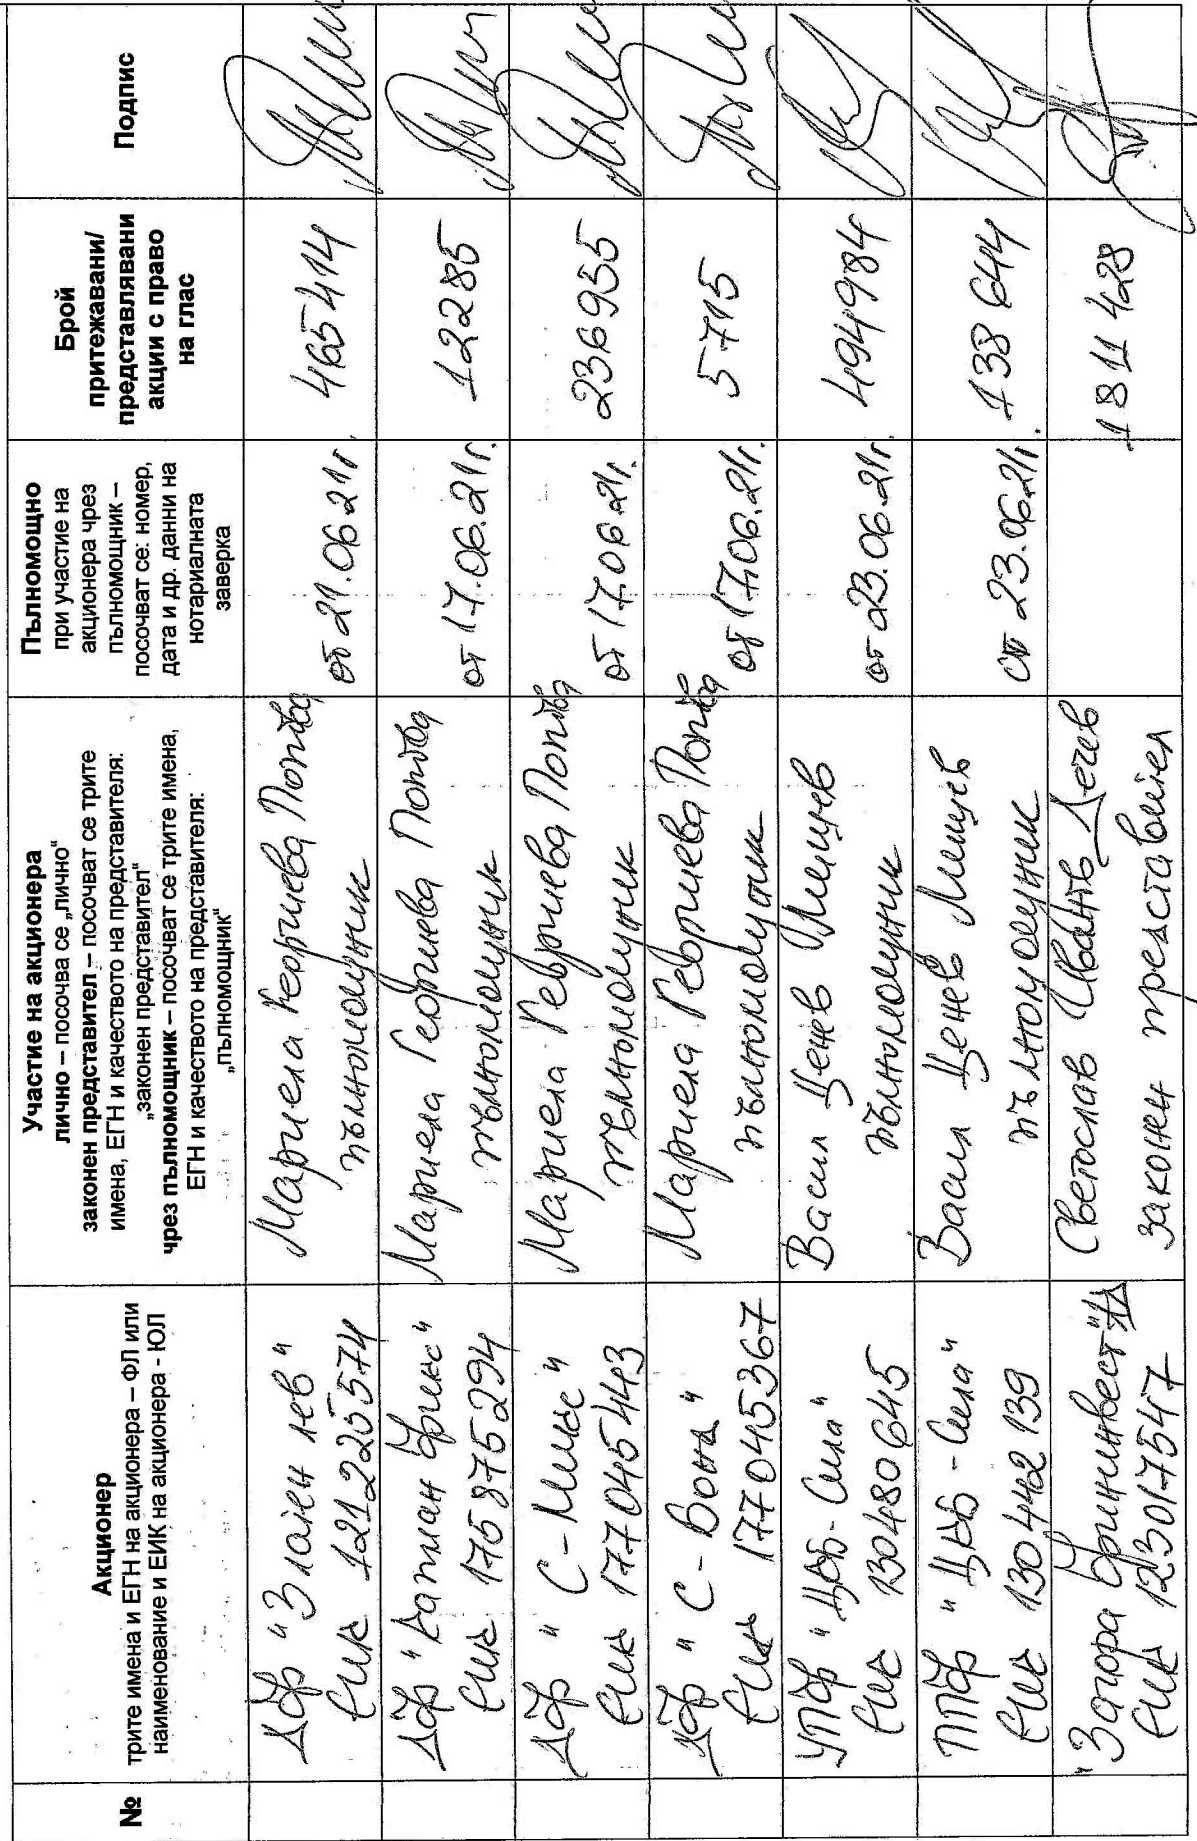 №
Акционер
трите имена и ЕГН на акционера – ФЛ или
наименование и ЕИК на акционера - ЮЛ
Участие на акционера
лично – посочва се „лично“
законен представител – посочват се трите
имена, ЕГН и качеството на представителя:
„законен представител“
чрез пълномощник – посочват се трите имена,
ЕГН и качеството на представителя:
„пълномощник“
Пълномощно
при участие на
акционера чрез
пълномощник –
посочват се: номер,
дата и др. данни на
нотариалната
заверка
Брой
притежавани/
представлявани
акции с право
на глас
Подпис
ДФ "Златен лев"
ЕИК 121225574
Мариела Георгиева Попова
пълномощник
от 21.06.21г.
465414
ДФ "Капман Фикс"
ЕИК 175875294
Мариела Георгиева Попова
пълномощник
от 17.06.21г.
12285
ДФ "С-Микс"
ЕИК 177045443
Мариела Георгиева Попова
пълномощник
от 17.06.21г.
236955
ДФ "С-Бонд"
ЕИК 177045367
Мариела Георгиева Попова
пълномощник
от 17.06.21г.
5715
УПФ "ЦКБ-Сила"
ЕИК 130480645
Васил Ценев
пълномощник
от 23.06.21г.
494984
ППФ "ЦКБ-Сила"
ЕИК 130442139
Васил Ценев
пълномощник
от 23.06.21г.
138 644
"Загора Фининвест" АД
ЕИК 123017547
Светослав Иванов Дечев
законен представител
1 811 428